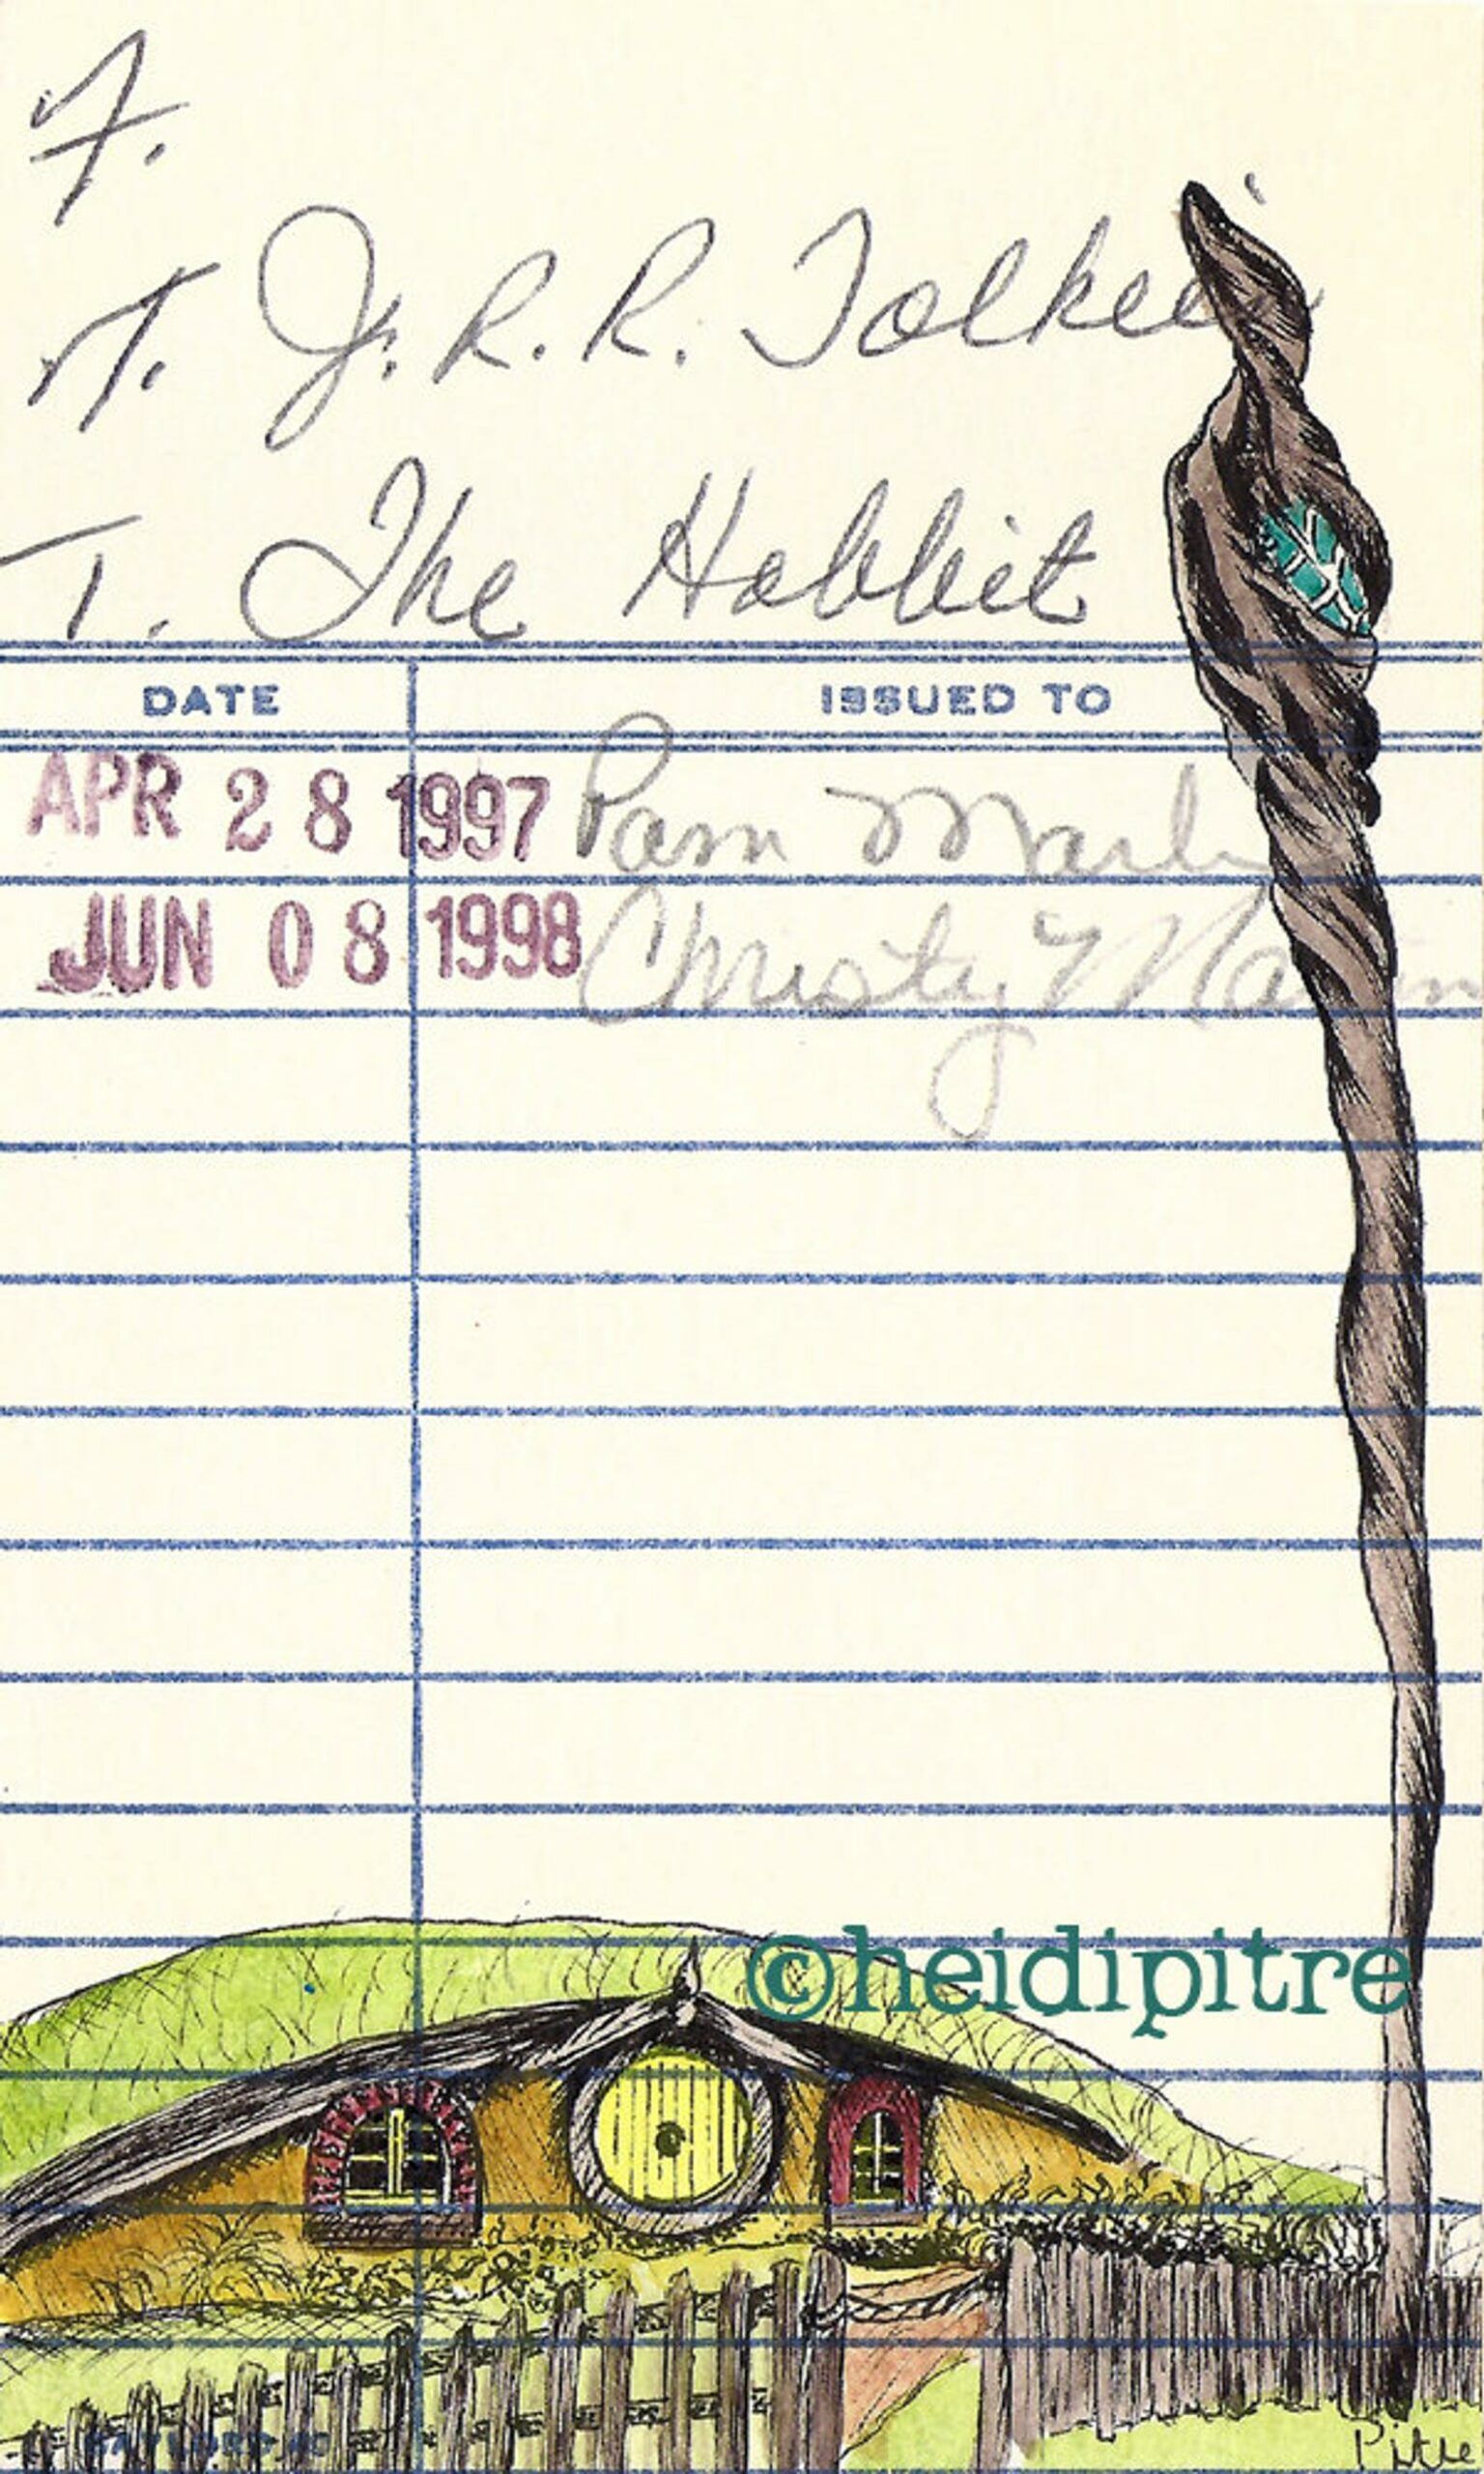 F.
A. J. R. R. Tolkei
T. The Hobbit
DATE ISSUED TO
APR 28 1997 Pam
JUN 08 1998 Christy
©heidipitre
Pitre